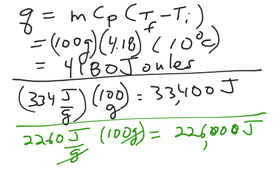 q = m Cp (Tf - Ti)
= (100g)(4.18)(10°C)
= 4180 Joules
(334 J/g)(100 g) = 33,400 J
2260 J/g (100g) = 226,000 J